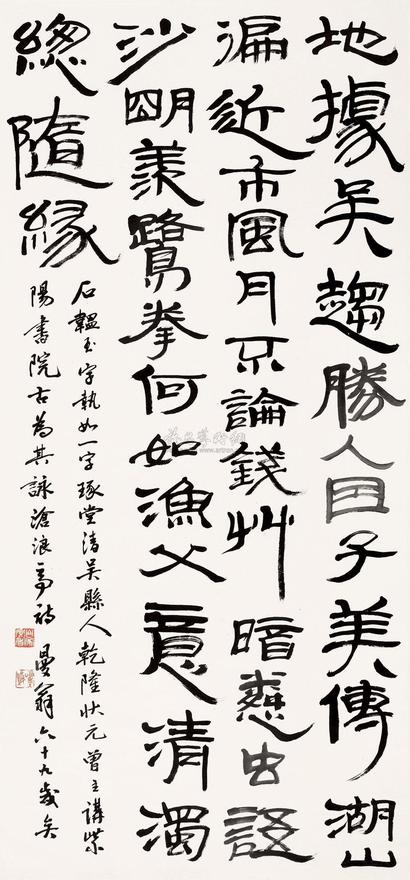 地據吳趨勝人因子美傳湖山
漏近市風月不論錢艸暗愁虫語
沙明羨鷺拳何如漁父意清濁
總隨緣
石韞玉字執如一字琢堂清吳縣人乾隆狀元曾主講紫
陽書院右為其詠滄浪亭詩 曼翁六十九歲矣